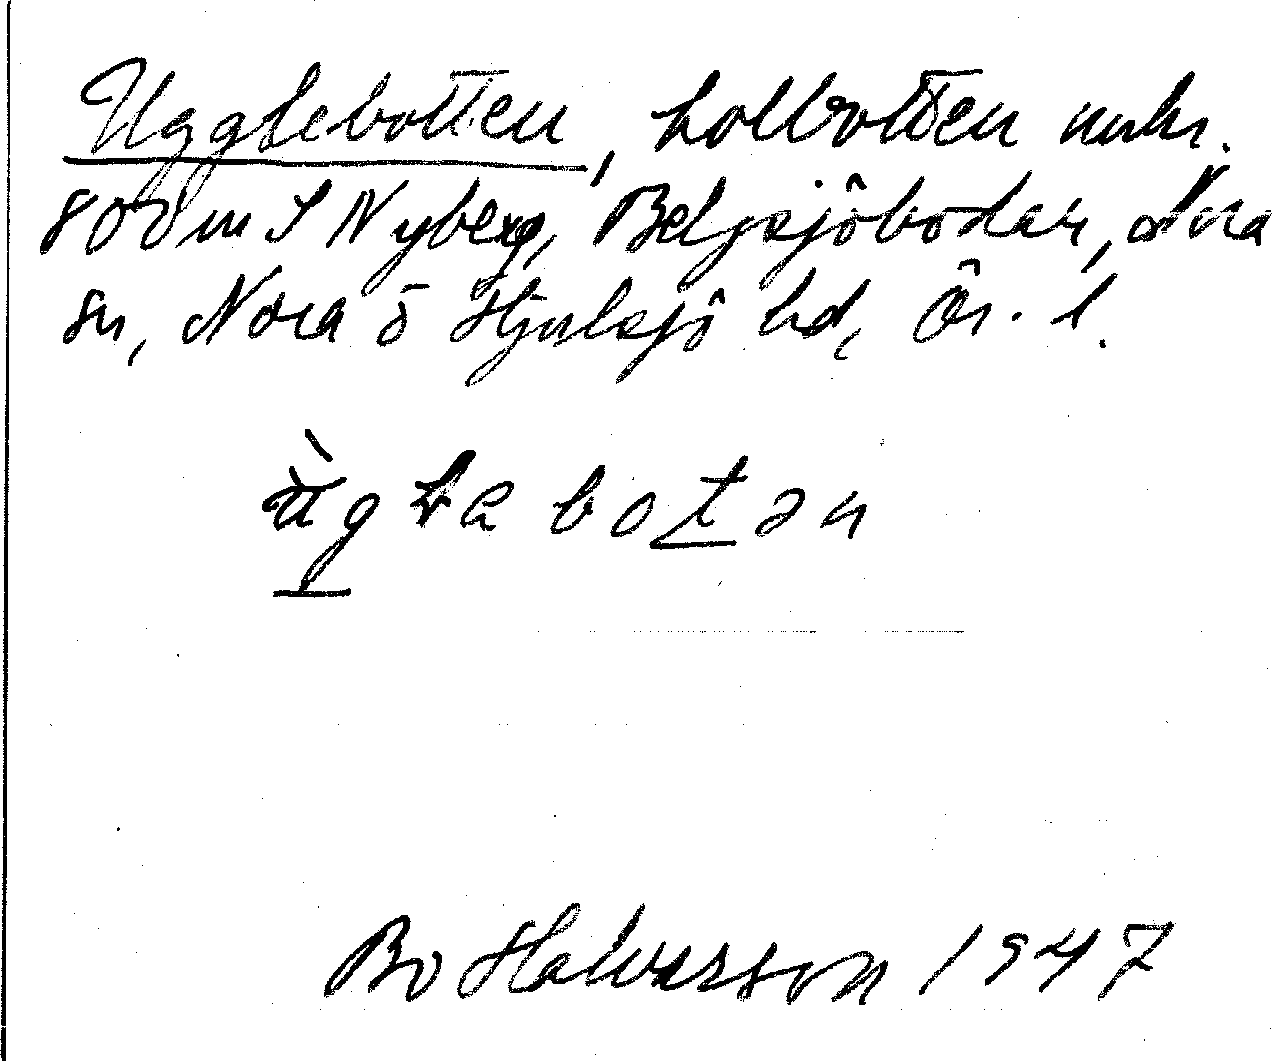 Ugglebotten, kolbotten mkr.
800 m S Nyberg, Bergsjöbodar, Nora
sn, Nora o Hjulsjö hd, Ör. l.
botən
Bo Halvarson 1947